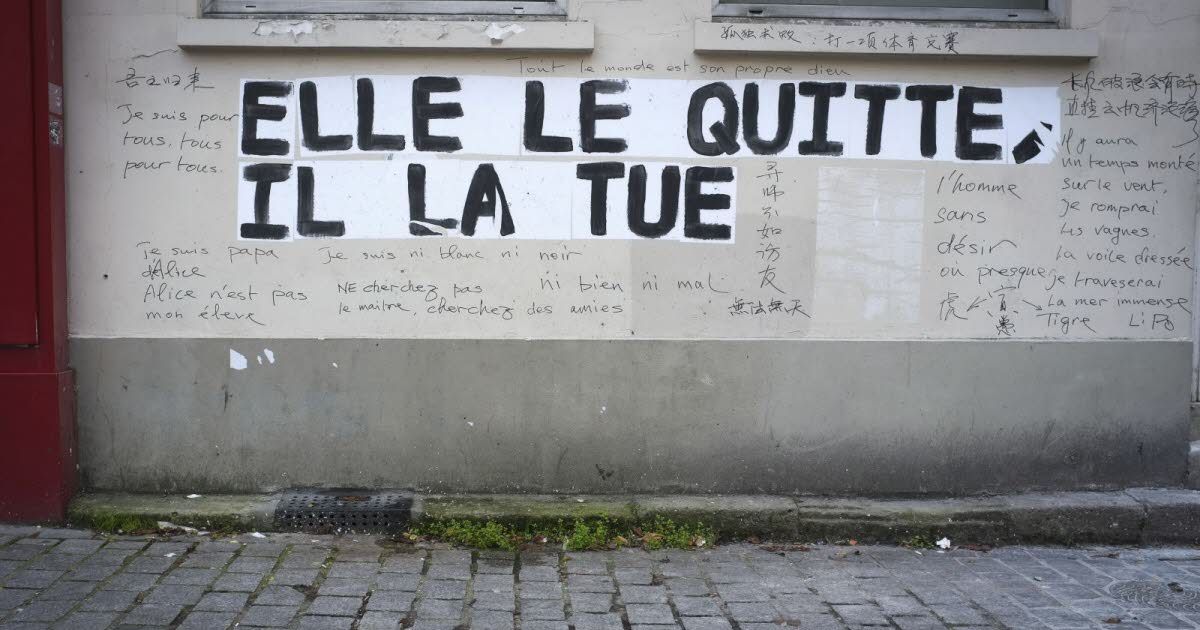 孤独求败：打一项体育竞赛
Tout le monde est son propre dieu
吾之归来
ELLE LE QUITTE,
IL LA TUE
Je suis pour
tous, tous
pour tous.
长风破浪会有时
直挂云帆济沧海
Il y aura
un temps monté
sur le vent,
je romprai
les vagnes.
La voile dressée
je traveserai
La mer immense
LiPo
寻
师
不
如
访
友
無法無天
l'homme
sans
désir
ou presque
虎
Tigre
Je suis papa
d'Alice
Alice n'est pas
mon élève
Je suis ni blanc ni noir
ni bien ni mal
NE cherchez pas
le maître, cherchez des amies